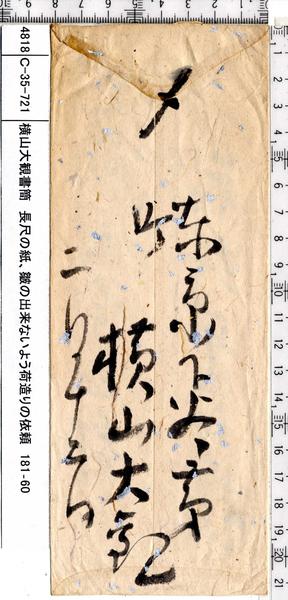 4818 C-35-721
横山大観書簡　長尺の紙、皺の出来ないよう荷造りの依頼　181-60
〆
東京下谷茅
町
横山大観
二月十三日